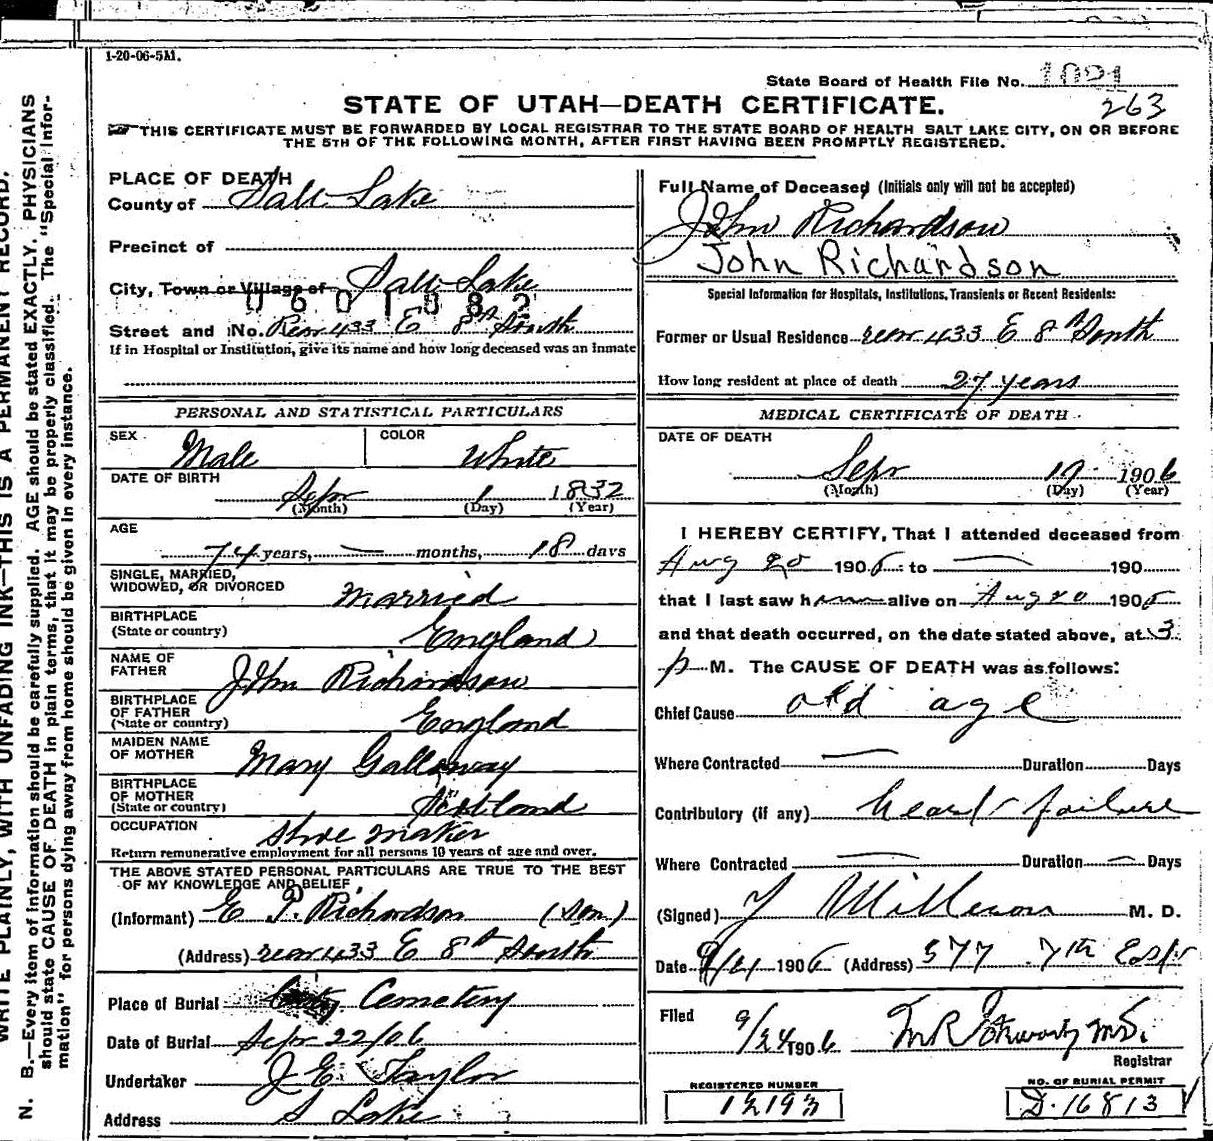 1-20-06-5M.
State Board of Health File No. 1091
263
STATE OF UTAH—DEATH CERTIFICATE.
THIS CERTIFICATE MUST BE FORWARDED BY LOCAL REGISTRAR TO THE STATE BOARD OF HEALTH SALT LAKE CITY, ON OR BEFORE
THE 5TH OF THE FOLLOWING MONTH, AFTER FIRST HAVING BEEN PROMPTLY REGISTERED.
PLACE OF DEATH
County of Salt Lake
Precinct of
City, Town or Village of Salt Lake
0601082
Street and No. Rear 433 E 8th South
If in Hospital or Institution, give its name and how long deceased was an inmate
PERSONAL AND STATISTICAL PARTICULARS
SEX Male COLOR White
DATE OF BIRTH
Sepr 1 1832
(Month) (Day) (Year)
AGE
74 years, — months, 18 days
SINGLE, MARRIED,
WIDOWED, OR DIVORCED Married
BIRTHPLACE
(State or country) England
NAME OF
FATHER John Richardson
BIRTHPLACE
OF FATHER
(State or country) England
MAIDEN NAME
OF MOTHER Mary Galloway
BIRTHPLACE
OF MOTHER
(State or country) Scotland
OCCUPATION Shoe maker
Return remunerative employment for all persons 10 years of age and over.
THE ABOVE STATED PERSONAL PARTICULARS ARE TRUE TO THE BEST
OF MY KNOWLEDGE AND BELIEF
(Informant) E P. Richardson (Son)
(Address) rear 433 E 8th South
Place of Burial City Cemetery
Date of Burial Sepr 22/06
Undertaker J E Taylor
Address S Lake
Full Name of Deceased (Initials only will not be accepted)
John Richardson
John Richardson
Special Information for Hospitals, Institutions, Transients or Recent Residents:
Former or Usual Residence rear 433 E 8th South
How long resident at place of death 27 years
MEDICAL CERTIFICATE OF DEATH
DATE OF DEATH
Sepr 19 1906
(Month) (Day) (Year)
I HEREBY CERTIFY, That I attended deceased from
Aug 20 1906 to — 190
that I last saw him alive on Aug 20 1906
and that death occurred, on the date stated above, at 3
p M. The CAUSE OF DEATH was as follows:
Chief Cause old age
Where Contracted — Duration Days
Contributory (if any) heart failure
Where Contracted — Duration — Days
(Signed) M. D.
Date 9/21 1906 (Address) 577 7th East
Filed 9/24 1906
Registrar
REGISTERED NUMBER
12193
NO. OF BURIAL PERMIT
D-16813
WRITE PLAINLY, WITH UNFADING INK—THIS IS A PERMANENT RECORD.
N. B.—Every item of information should be carefully supplied. AGE should be stated EXACTLY. PHYSICIANS
should state CAUSE OF DEATH in plain terms, that it may be properly classified. The "Special Infor-
mation" for persons dying away from home should be given in every instance.